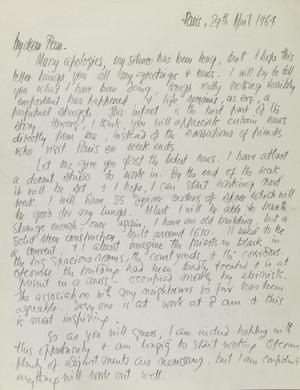 Paris, 29th April 1964
My dear Peter.
Many apologies, my silence has been long, but I hope this
letter brings you all my greetings & news. I will try to tell
you what I have been doing, though really nothing terribly
important has happened & life remains, as ever, a
perpetual struggle. This infact is the best part of its
story. However, I think you will appreciate certain news
directly from me, instead of the narrations of friends
who visit Paris on week ends.
Let me give you first the latest news. I have atlast
a decent studio to work in. By the end of the week
it will be set & I hope, I can start working next
week. I will have 35 square metres of space which will
be good for my lungs. Atlast I will be able to breath
strange enough - once again, I have an old building, but a
solid stone construction, built around 1610. It used to be
a convent & I almost imagine the priests in black in
the big spacious rooms, the courtyards & its corridors.
Ofcourse the building had been badly treated & is at
present in a mess - occupied mostly by
the association with my neighbours so far has been
agreable. Every one is at work at 8 am & this
is most inspiring.
So as you will guess, I am indeed happy in
this opportunity & am longing to start working. Ofcourse
plenty of adjustments are necessary, but I am confident
everything will work out well.